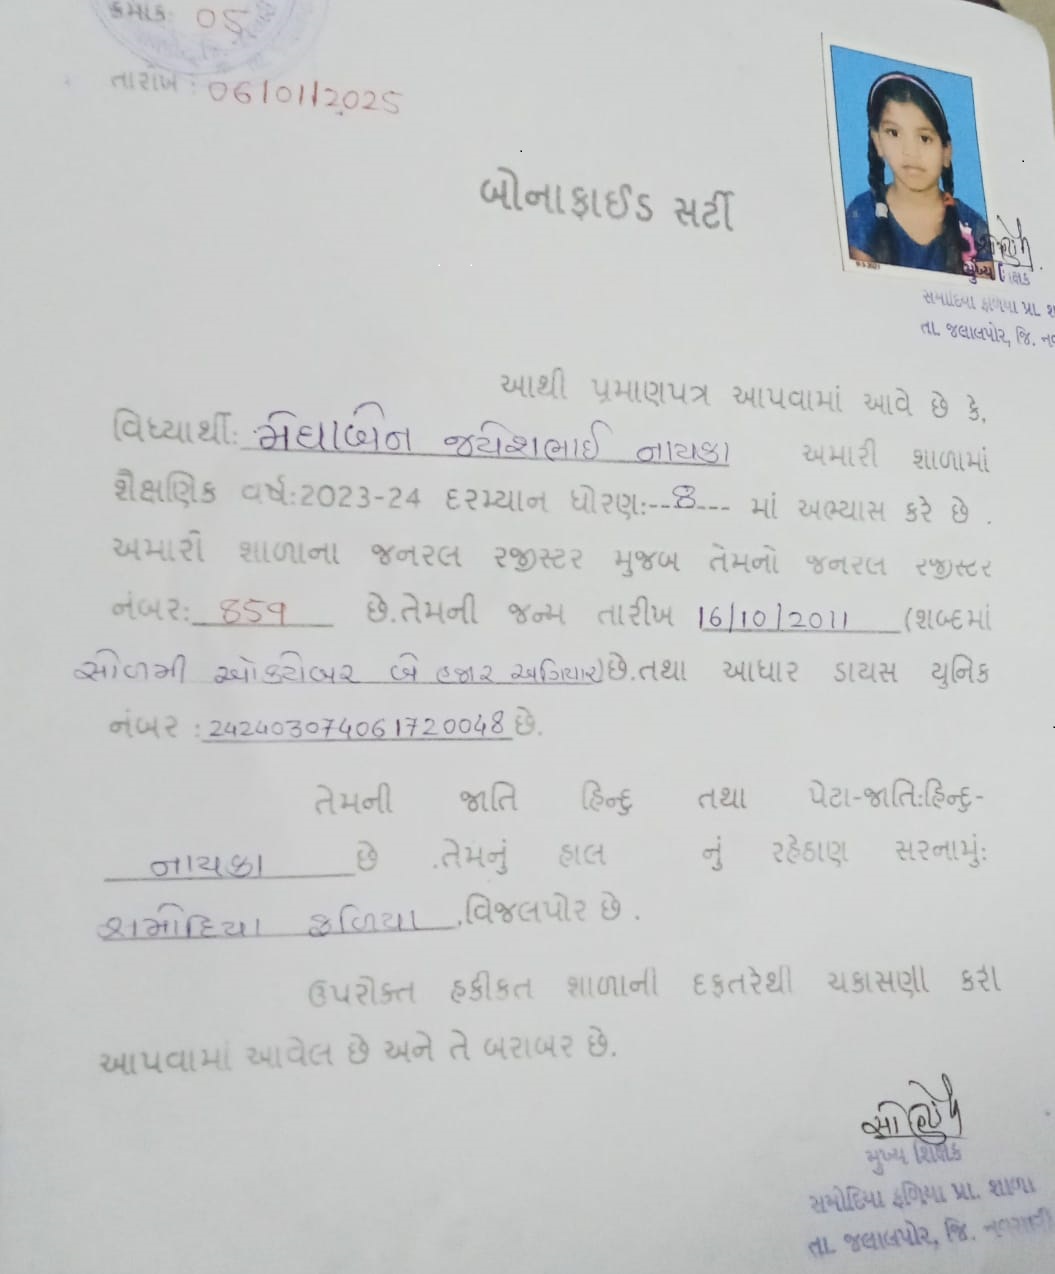 ક્રમાંક: 05
તારીખ : 06/01/2025
બોનાફાઈડ સર્ટી
મુખ્ય શિક્ષક
સમોદિયા ફળિયા પ્રા. શ
તા. જલાલપોર, જિ. નવ
આથી પ્રમાણપત્ર આપવામાં આવે છે કે,
વિધ્યાર્થી: મેઘાબેન જયેશભાઈ નાયકા અમારી શાળામાં
શૈક્ષણિક વર્ષ:2023-24 દરમ્યાન ધોરણ:--8--- માં અભ્યાસ કરે છે .
અમારી શાળાના જનરલ રજીસ્ટર મુજબ તેમનો જનરલ રજીસ્ટર
નંબર: 859 છે.તેમની જન્મ તારીખ 16/10/2011 (શબ્દમાં
સોળમી ઓક્ટોબર બે હજાર અગિયાર)છે.તથા આધાર ડાયસ યુનિક
નંબર :242403074061720048 છે.
તેમની જાતિ હિન્દુ તથા પેટા-જાતિ:હિન્દુ-
નાયકા છે .તેમનું હાલ નું રહેઠાણ સરનામું:
શામોદિયા ફળિયા ,વિજલપોર છે .
ઉપરોક્ત હકીકત શાળાની દફતરેથી ચકાસણી કરી
આપવામાં આવેલ છે અને તે બરાબર છે.
મુખ્ય શિક્ષક
સમોદિયા ફળિયા પ્રા. શાળા
તા. જલાલપોર, જિ. નવસારી